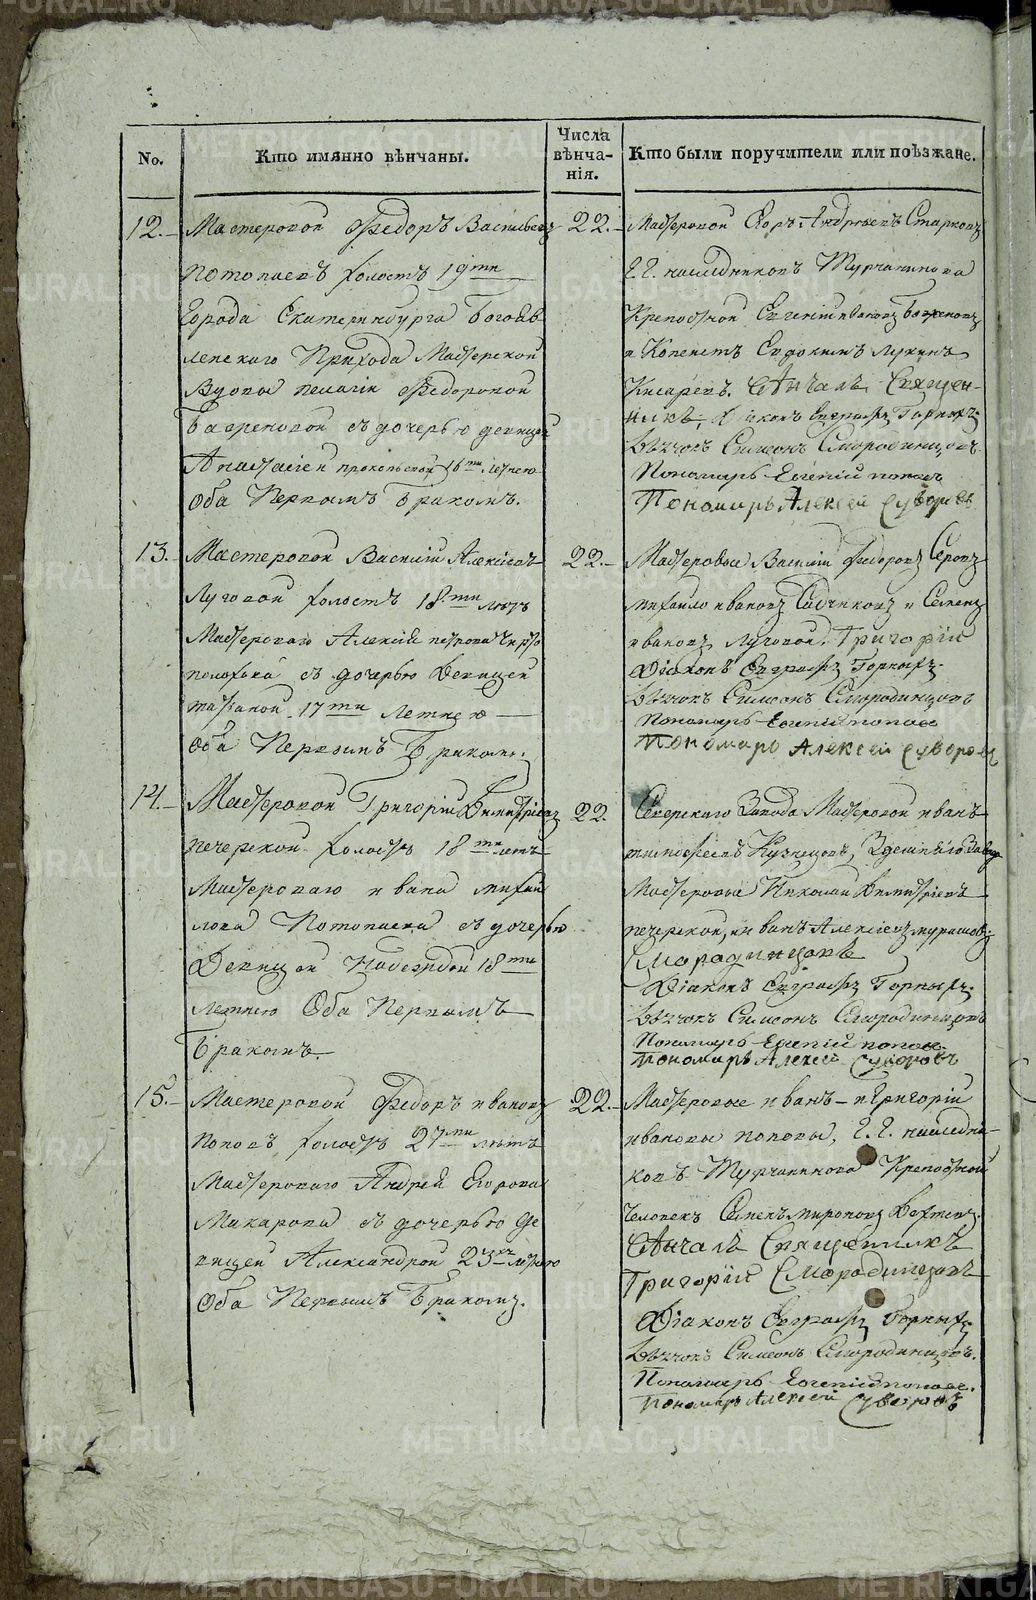 No.
Кто имянно вѣнчаны.
Числа
вѣнча-
нія.
Кто были поручители или поѣзжане.
12.
Мастеровой Ѳедоръ Васильевъ
Потопаевъ холостъ 19ти
Города Екатеринбурга Богояв
ленскаго Прихода Мастерской
Вдовы Пелагіи Ѳедоровой
Багреновой съ дочерью девицей
Анастасіей Прокопьевой 16ти летнею
Оба Первымъ Бракомъ.
22.
Мастеровой Андреевъ Старковъ
Г.Г. наследниковъ Турчанинова
Крепостной Евгеній Ивановъ
и Копеистъ Евдокимъ Лукинъ
Писаревъ. Вѣнчалъ Священ-
никъ, Діаконъ Евграфъ Горныхъ
Дьячокъ Симеонъ Смородинцовъ
Пономарь Евгеній Поповъ
Пономарь Алексей Суворовъ
13.
Мастеровой Василій Алексіевъ
Луговой холостъ 18ти летъ
Мастероваго Алексія Петрова
съ дочерью Девицей
Татьяной 17ти Летнею
Оба Первымъ Бракомъ.
22.
Мастеровые Василій Ѳедоровъ Серовъ
Михайло Ивановъ и Семенъ
Ивановъ Луговой. Григорій
Діаконъ Евграфъ Горныхъ.
Дьячокъ Симеонъ Смородинцовъ
Пономарь Евгеній Поповъ
Пономарь Алексей Суворовъ
14.
Мастеровой Григорій Димитріевъ
Печерской холостъ 18ти летъ
Мастероваго Ивана Михай
лова Потопаева съ дочерью
Девицей Надеждой 18ти
Летнею Оба Первымъ
Бракомъ.
22.
Северскаго Завода Мастеровой Иванъ
Тимофеевъ Кузнецовъ, Здешняго Завода
Мастеровыя Николай Димитріевъ
Печерской, и Иванъ Алексіевъ
Смородинцовъ
Діаконъ Евграфъ Горныхъ.
Дьячокъ Симеонъ Смородинцовъ
Пономарь Евгеній Поповъ.
Пономарь Алексей Суворовъ
15.
Мастеровой Ѳедоръ Ивановъ
Поповъ холостъ 27ми летъ
Мастероваго Андрея Егорова
Макарова съ дочерью Де
вицей Александрой 23 летнею
Оба Первымъ Бракомъ.
22.
Мастеровые Иванъ и Григорій
Ивановы Поповы, Г.Г. наследни-
ковъ Турчанинова Крепостной
Человекъ Семенъ Мироновъ
Вѣнчалъ Священникъ
Григорій Смородинцовъ
Діаконъ Евграфъ Горныхъ
Дьячокъ Симеонъ Смородинцовъ.
Пономарь Евгеній Поповъ.
Пономарь Алексей Суворовъ
METRIKI.GASO-URAL.RU